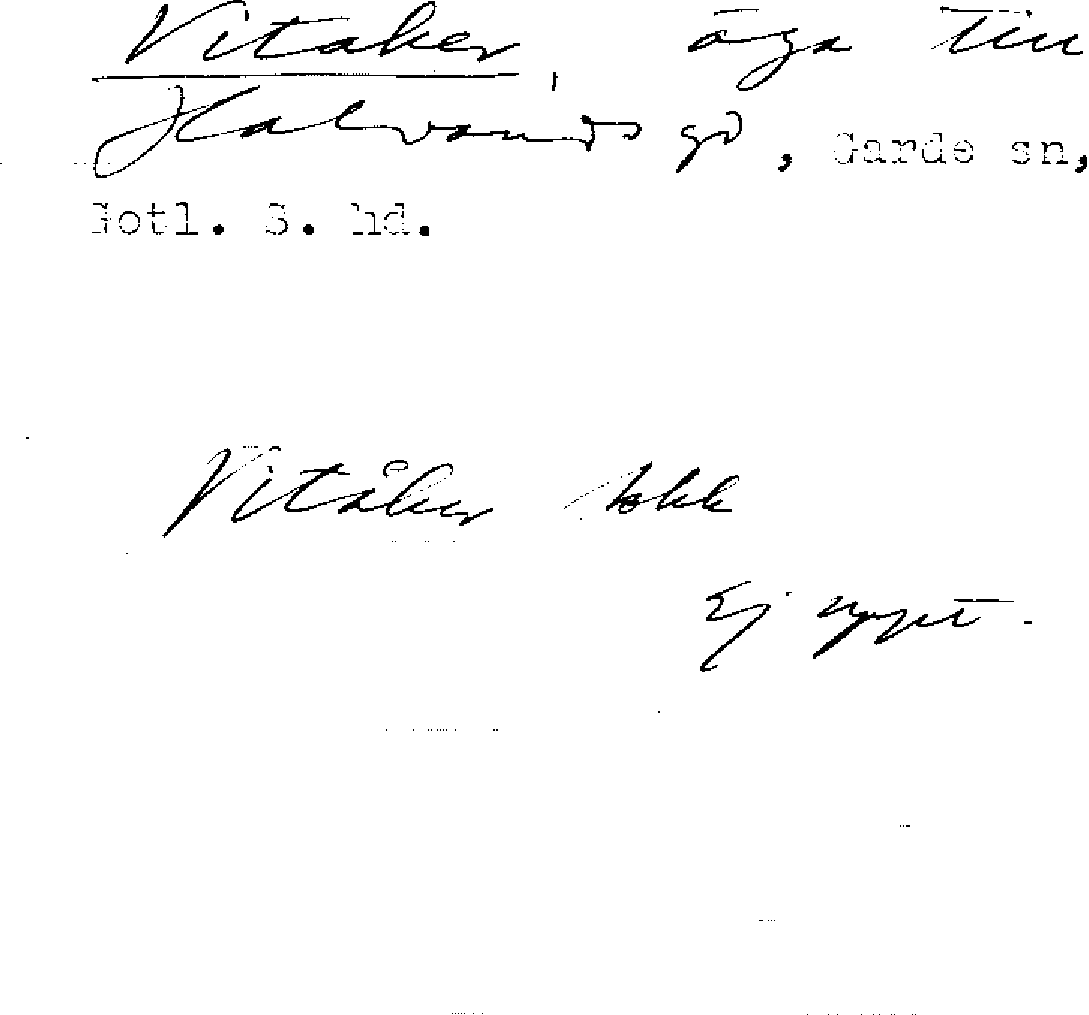 Vitaker, äga till
Halvands gd, Garde sn,
Gotl. S. hd.
Vitåker
Ej uppt.